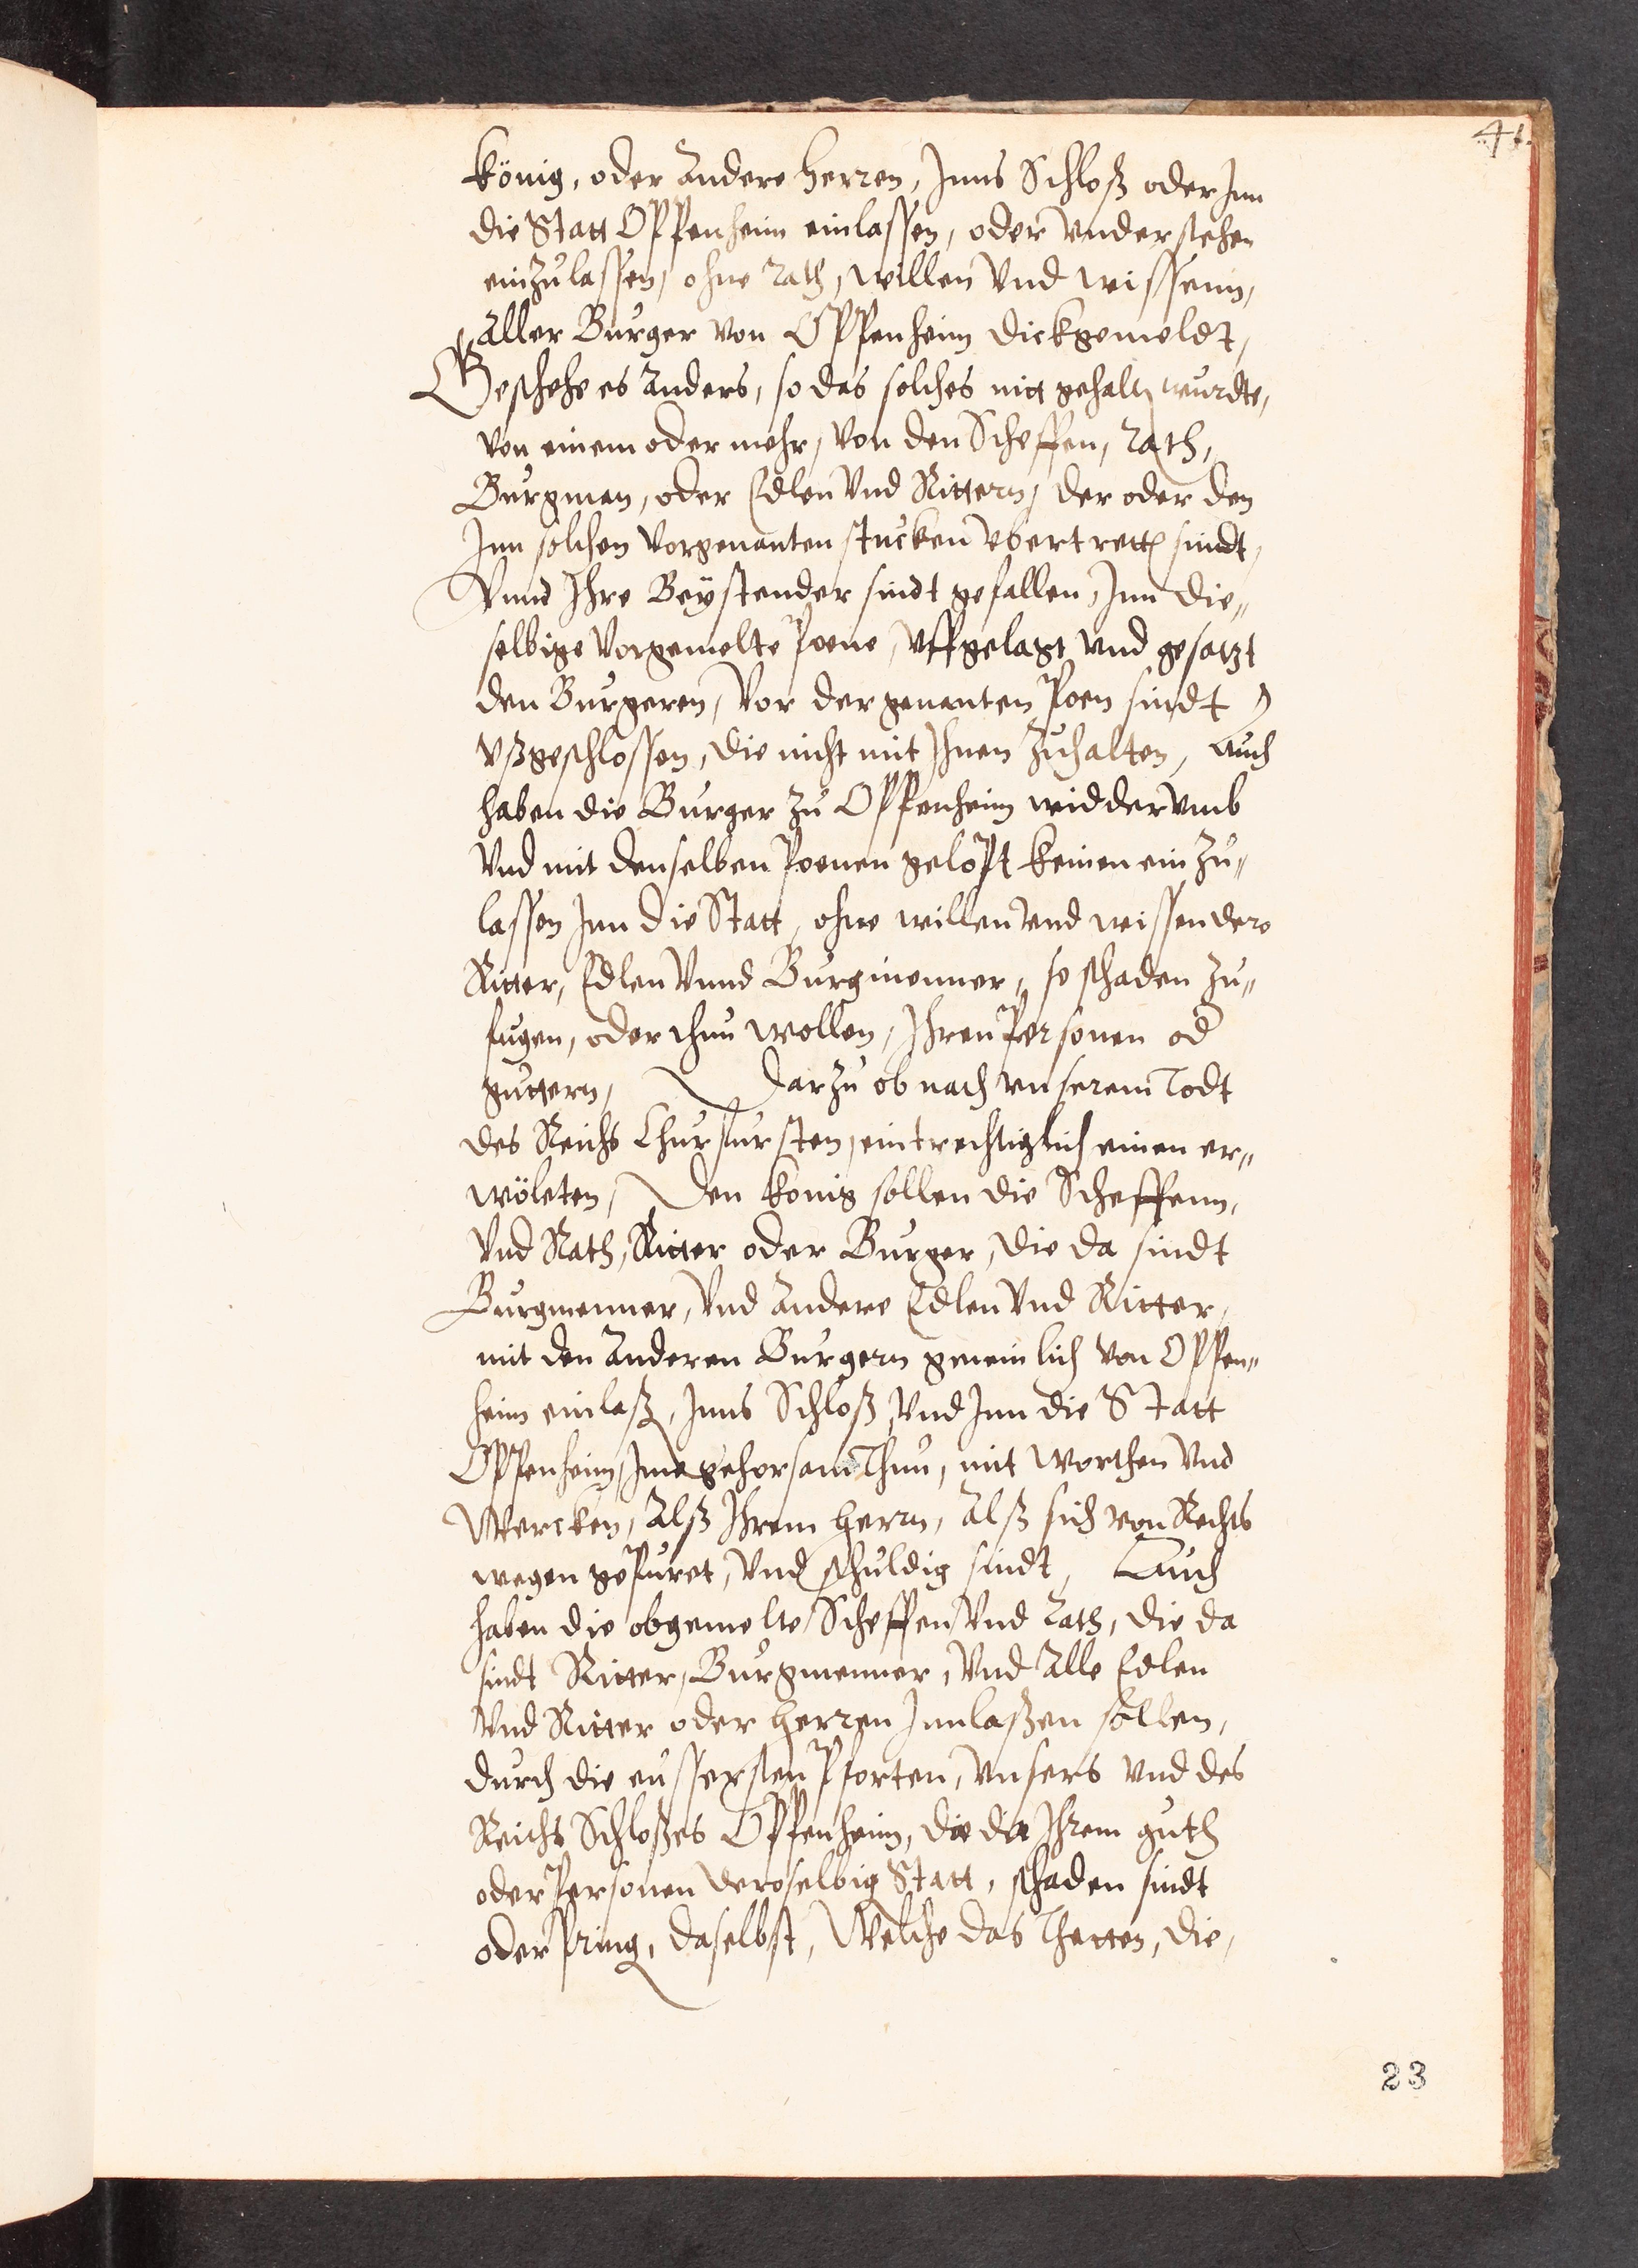 41.
König, oder andere herren, Inns Schloß oder Inn
die Statt Oppenheim einlassen, oder vnderstehen
einzulassen, ohne rath, willen vnd wissenn,
aller Burger von Oppenheim dickgemeldt,
Geschehe es anders, so das solches nitt gehaltn wurdte,
von einem oder mehr, von den Scheffen, rath,
Burgman, oder Edlen vnd Rittern, der oder den
Inn solchen vorgenanten stucken vbertrettn sindt,
Vnnd Ihre Beÿstender sindt gefallen, Inn die„
selbige vorgemelte Poene, vffgelagt vnd gesatzt
den Burgeren, vor der genanten Poen sindt
vßgeschlossen, die nicht mit Ihnen zuhalten, Auch
haben die Burger zu Oppenheim widdervmb
Vnd mit denselben Poenen gelopt keinen ein zu„
lassen Inn die Statt, ohne willen vnd wissen dero
Ritter, Edlen vnnd Burgmenner, so schaden zu„
fugen, oder thun wollen, Ihren Personen od
guttern, Darzu ob nach vnserem Todt
des Reichs Churfursten, eintrechtiglich einen er„
wöleten, Den König sollen die Scheffenn,
Vnd Rath, Ritter oder Burger, die da sindt
Burgmenner, vnd andere Edlen vnd Ritter,
mit den anderen Burgern gemeinlich von Oppen„
heim einlaßn, Inns Schloß, vnd Inn die Statt
Oppenheim, Ime gehorsam Thun, mit worthen vnd
Wercken, alß Ihrem herrn, alß sich von Rechts
wegen gepuret, vnd schuldig sindt, Auch
haben die obgemelte Scheffen vnd rath, die da
sindt Ritter, Burgmenner, vnd alle Edlen
Vnd Ritter oder herren Innlaßen sollen,
durch die eussersten Pforten, vnsers vnd des
Reichs Schloßes Oppenheim, die die Ihrem guth
oder Personen deroselbig Statt, schaden sindt
oder daselbst, Welche das Thetten, die,
23